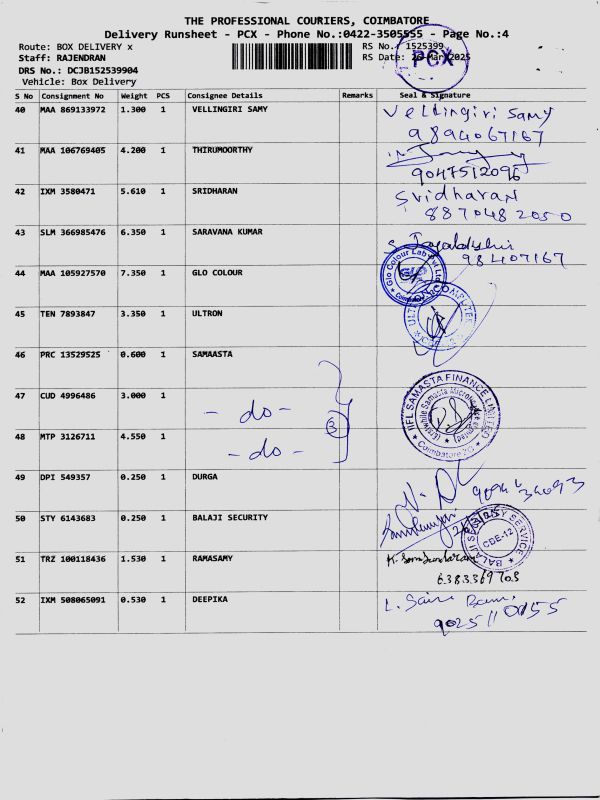 THE PROFESSIONAL COURIERS, COIMBATORE
Delivery Runsheet - PCX - Phone No.:0422-3505555 - Page No.:4
Route: BOX DELIVERY x RS No.: 1525399
Staff: RAJENDRAN RS Date: 26-Mar-2025
PCX
DRS No.: DCJB152539904
Vehicle: Box Delivery
S No Consignment No Weight PCS Consignee Details Remarks Seal & Signature
40 MAA 869133972 1.300 1 VELLINGIRI SAMY Vellingiri Samy
9894067167
41 MAA 106769405 4.200 1 THIRUMOORTHY
9047512096
42 IXM 3580471 5.610 1 SRIDHARAN Sridharan
8870482050
43 SLM 366985476 6.350 1 SARAVANA KUMAR
98407167
44 MAA 105927570 7.350 1 GLO COLOUR Glo Colour Lab Pvt Ltd
45 TEN 7893847 3.350 1 ULTRON ULTRON
46 PRC 13529525 0.600 1 SAMAASTA
47 CUD 4996486 3.000 1 - do - 3 IIFL SAMASTA FINANCE LIMITED
Coimbatore
48 MTP 3126711 4.550 1 - do -
49 DPI 549357 0.250 1 DURGA
50 STY 6143683 0.250 1 BALAJI SECURITY BALAJI SECURITY SERVICE
CDE-12
51 TRZ 100118436 1.530 1 RAMASAMY K. Somsundaram
6383369703
52 IXM 508065091 0.530 1 DEEPIKA
9025110155